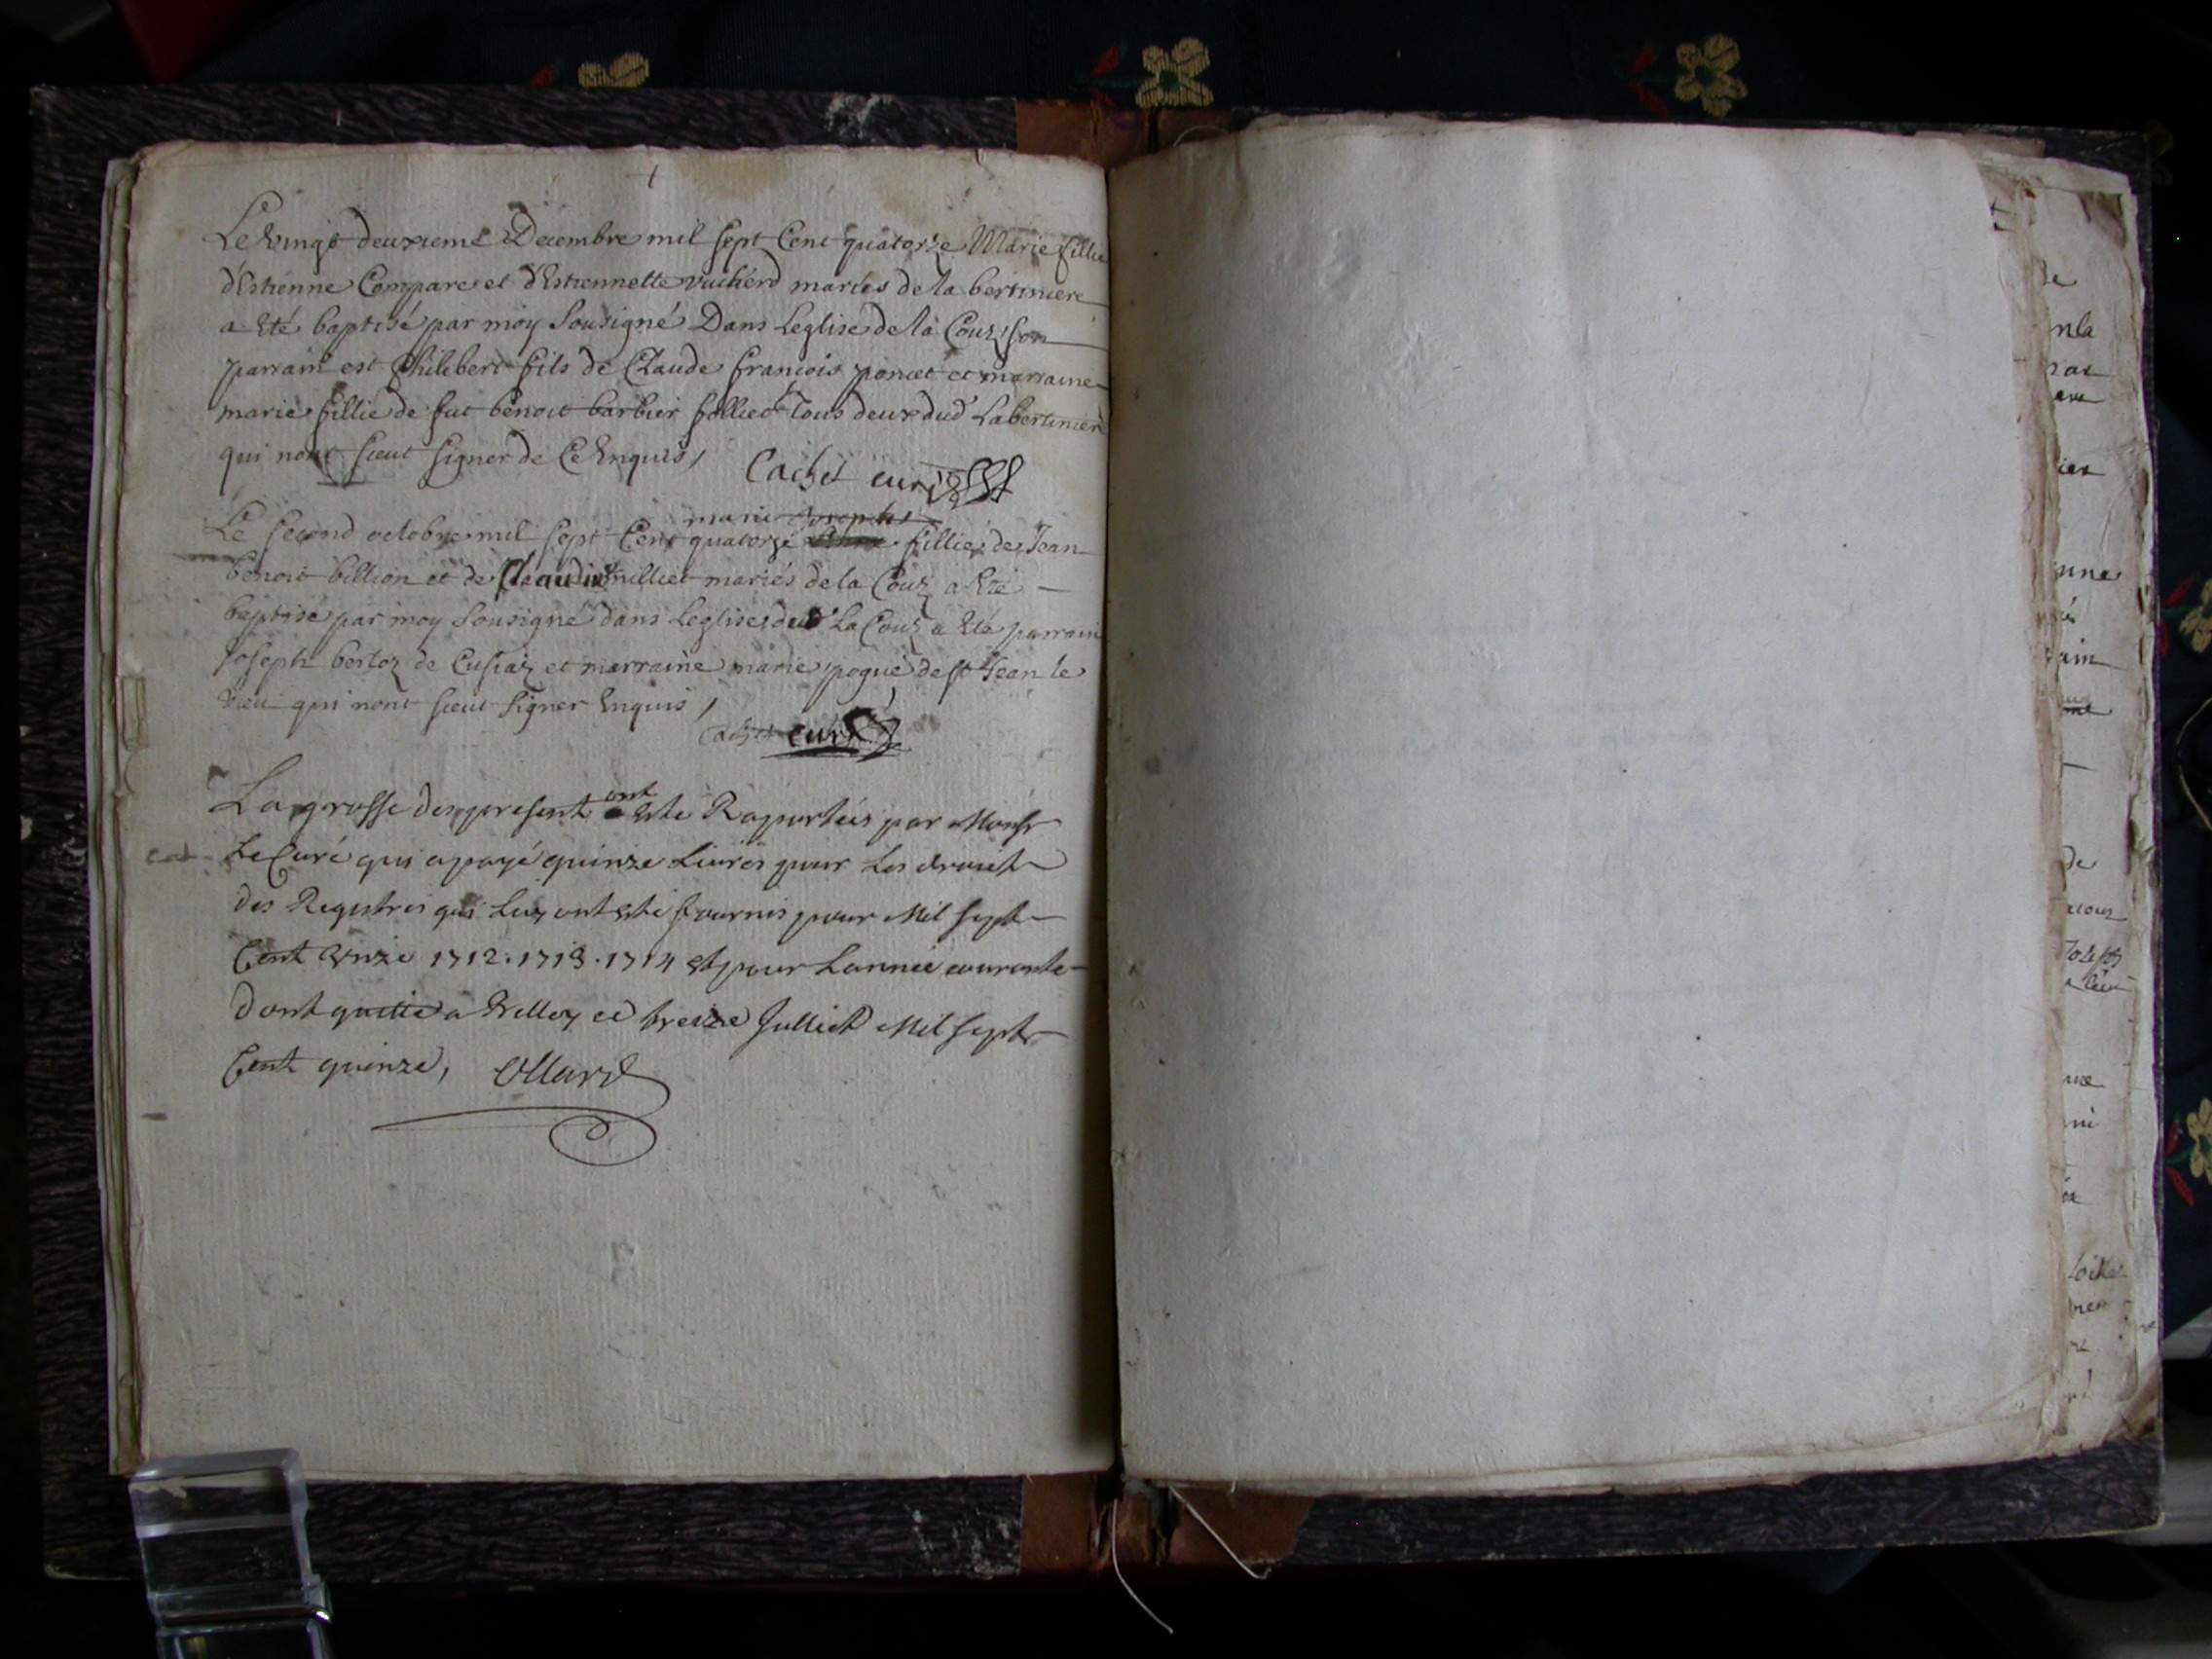 Le vingt deuxieme Decembre mil sept Cent quatorze Marie fillie
d'Estienne Compare et d'Estiennette vuicherd mariés de la bertiniere
a Eté baptisé par moy Sousigné Dans Leglise de la Couz son
parrain est Philibert fils de Claude francois poncet et marraine
marie fillie de fut benoit barbier folliet tous deux dud La bertiniere
qui nont sceut signer de Ce Enquis /
Cachet curé
marie Josephte
Le second octobre mil sept Cent quatorze fillie de Jean
benoit billion et de Claudine milliet mariés de la Couz a Eté
baptisé par moy Sousigné dans Leglise dud La Couz a Eté parrain
Joseph bertoz de Cusiaz et marraine marie pogue de st Jean le
vieu qui nont sceut signer Enquis /
Cachet curé
La grosse des present ont Este Raportéés par Monsr
Le Curé qui a payé quinze Livres pour Les droict
des Registres qui Luy ont Esté fournis pour Mil sept
Cent Unze 1712. 1713. 1714 Et pour Lannée courante
dont quitte a Belley ce treize Julliet Mil sept
Cent quinze,